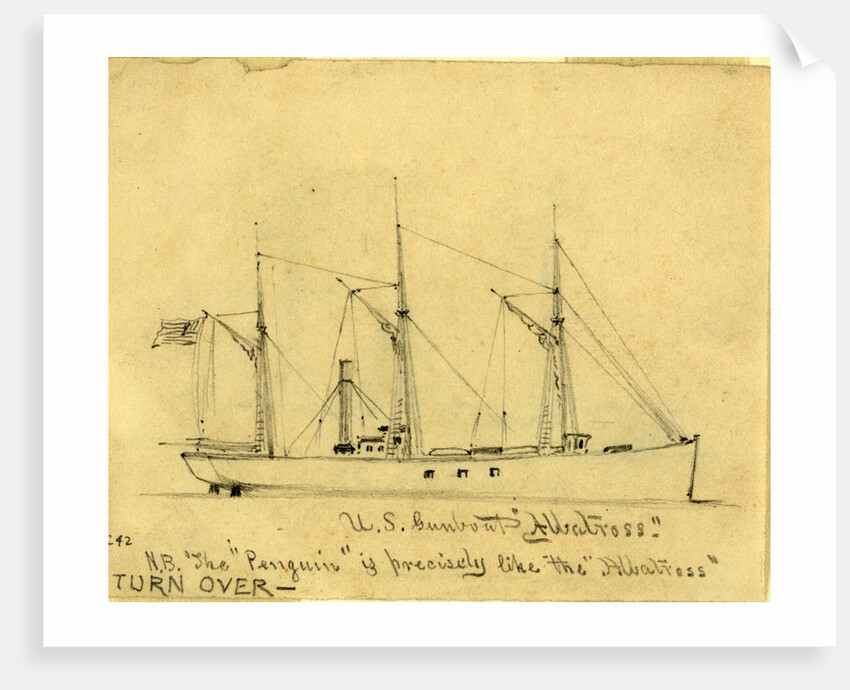 U.S. Gunboat "Albatross".
242
N.B. The "Penguin" is precisely like the "Albatross"
TURN OVER—